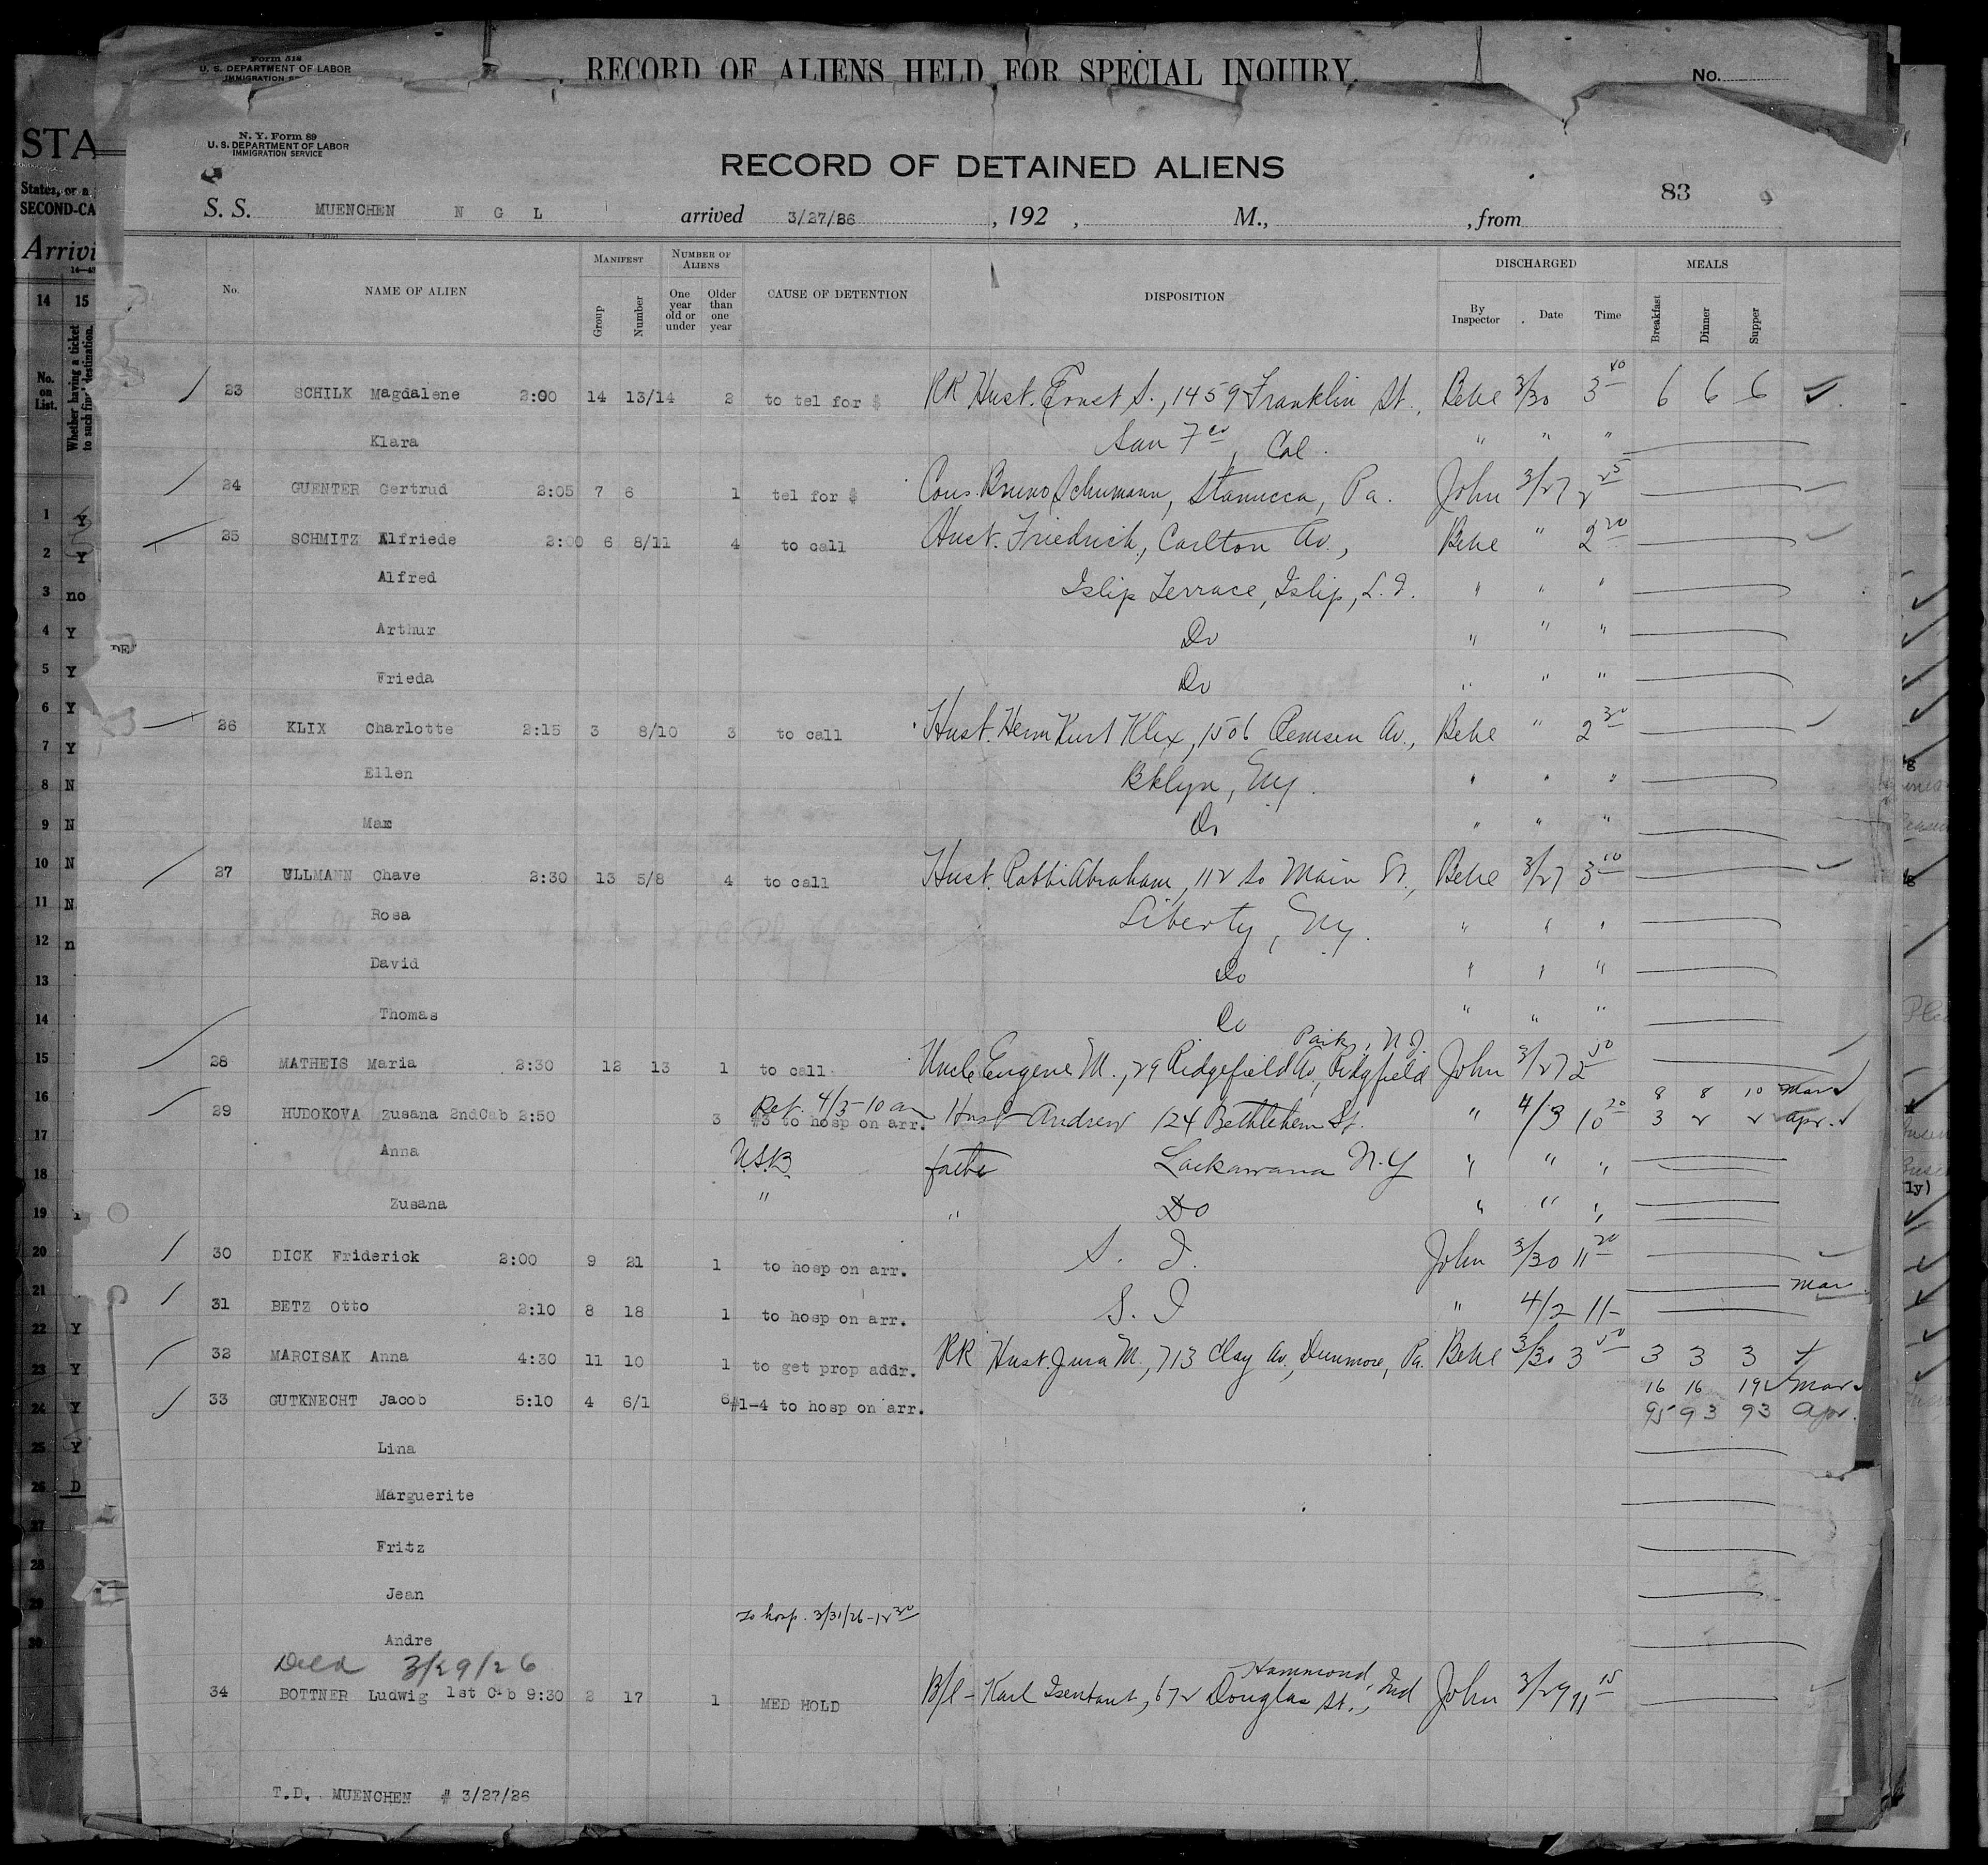 Form 518
U. S. DEPARTMENT OF LABOR
IMMIGRATION
RECORD OF ALIENS HELD FOR SPECIAL INQUIRY.
No.
N. Y. Form 89
U. S. DEPARTMENT OF LABOR
IMMIGRATION SERVICE
RECORD OF DETAINED ALIENS
83
S. S. MUENCHEN N G L arrived 3/27/26 , 192 , M., , from
STA
States, or a
SECOND-CA
Arrivi
14 15
No. on List.
Whether having a ticket to such final destination.
No. NAME OF ALIEN MANIFEST Group Number NUMBER OF ALIENS One year old or under Older than one year CAUSE OF DETENTION DISPOSITION DISCHARGED By Inspector Date Time MEALS Breakfast Dinner Supper
23 SCHILK Magdalene 2:00 14 13/14 2 to tel for $ RR Husb. Ernst S., 1459 Franklin St., Behe 3/30 3 40 6 6 6
Klara San Fco, Cal. " " "
24 GUENTER Gertrud 2:05 7 6 1 tel for $ Cous. Bruno Schumann, Pa. John 3/27 2 25
25 SCHMITZ Alfriede 2:00 6 8/11 4 to call Husb. Friedrich, Carlton Av., Behe " 2 20
Alfred Islip Terrace, Islip, L.I. " " "
Arthur Do " " "
Frieda Do " " "
26 KLIX Charlotte 2:15 3 8/10 3 to call Husb. Herm Kurt Klix, 1506 Remsen Av., Behe " 2 30
Ellen Bklyn, Ny. " " "
Max Do " " "
27 ULLMANN Chave 2:30 13 5/8 4 to call Husb. Rabbi Abraham, 112 So Main St., Behe 3/27 3 10
Rosa Liberty, Ny. " " "
David Do " " "
Thomas Do " " "
Park, N.J.
28 MATHEIS Maria 2:30 12 13 1 to call Uncle Eugene M., 29 Ridgefield Av., Ridgfield John 3/27 2 50
8 8 10 Mar
Ret. 4/3-10 am
29 HUDOKOVA Zusana 2ndCab 2:50 3 #3 to hosp on arr. Husb Andrew 124 Bethlehem St. " 4/3 10 20 3 2 2 Apr.
Anna U.S.B. father Lackawana N.Y " " "
Zusana " " Do " " "
30 DICK Friderick 2:00 9 21 1 to hosp on arr. S. I. John 3/30 11 20
Mar
31 BETZ Otto 2:10 8 18 1 to hosp on arr. S. I " 4/2 11-
32 MARCISAK Anna 4:30 11 10 1 to get prop addr. RR Husb. Jura M., 713 Clay Av, Dunmore, Pa. Behe 3/30 3 50 3 3 3
16 16 19 Mar
33 GUTKNECHT Jacob 5:10 4 6/1 6 #1-4 to hosp on arr. 95 93 93 Apr.
Lina
Marguerite
Fritz
Jean
To hosp. 3/31/26-12 30
Andre
Deld 3/29/26
Hammond, Ind
34 BOTTNER Ludwig 1st Cab 9:30 2 17 1 MED HOLD B/l - Karl , 672 Douglas St., John 3/29 11 15
T.D. MUENCHEN # 3/27/26